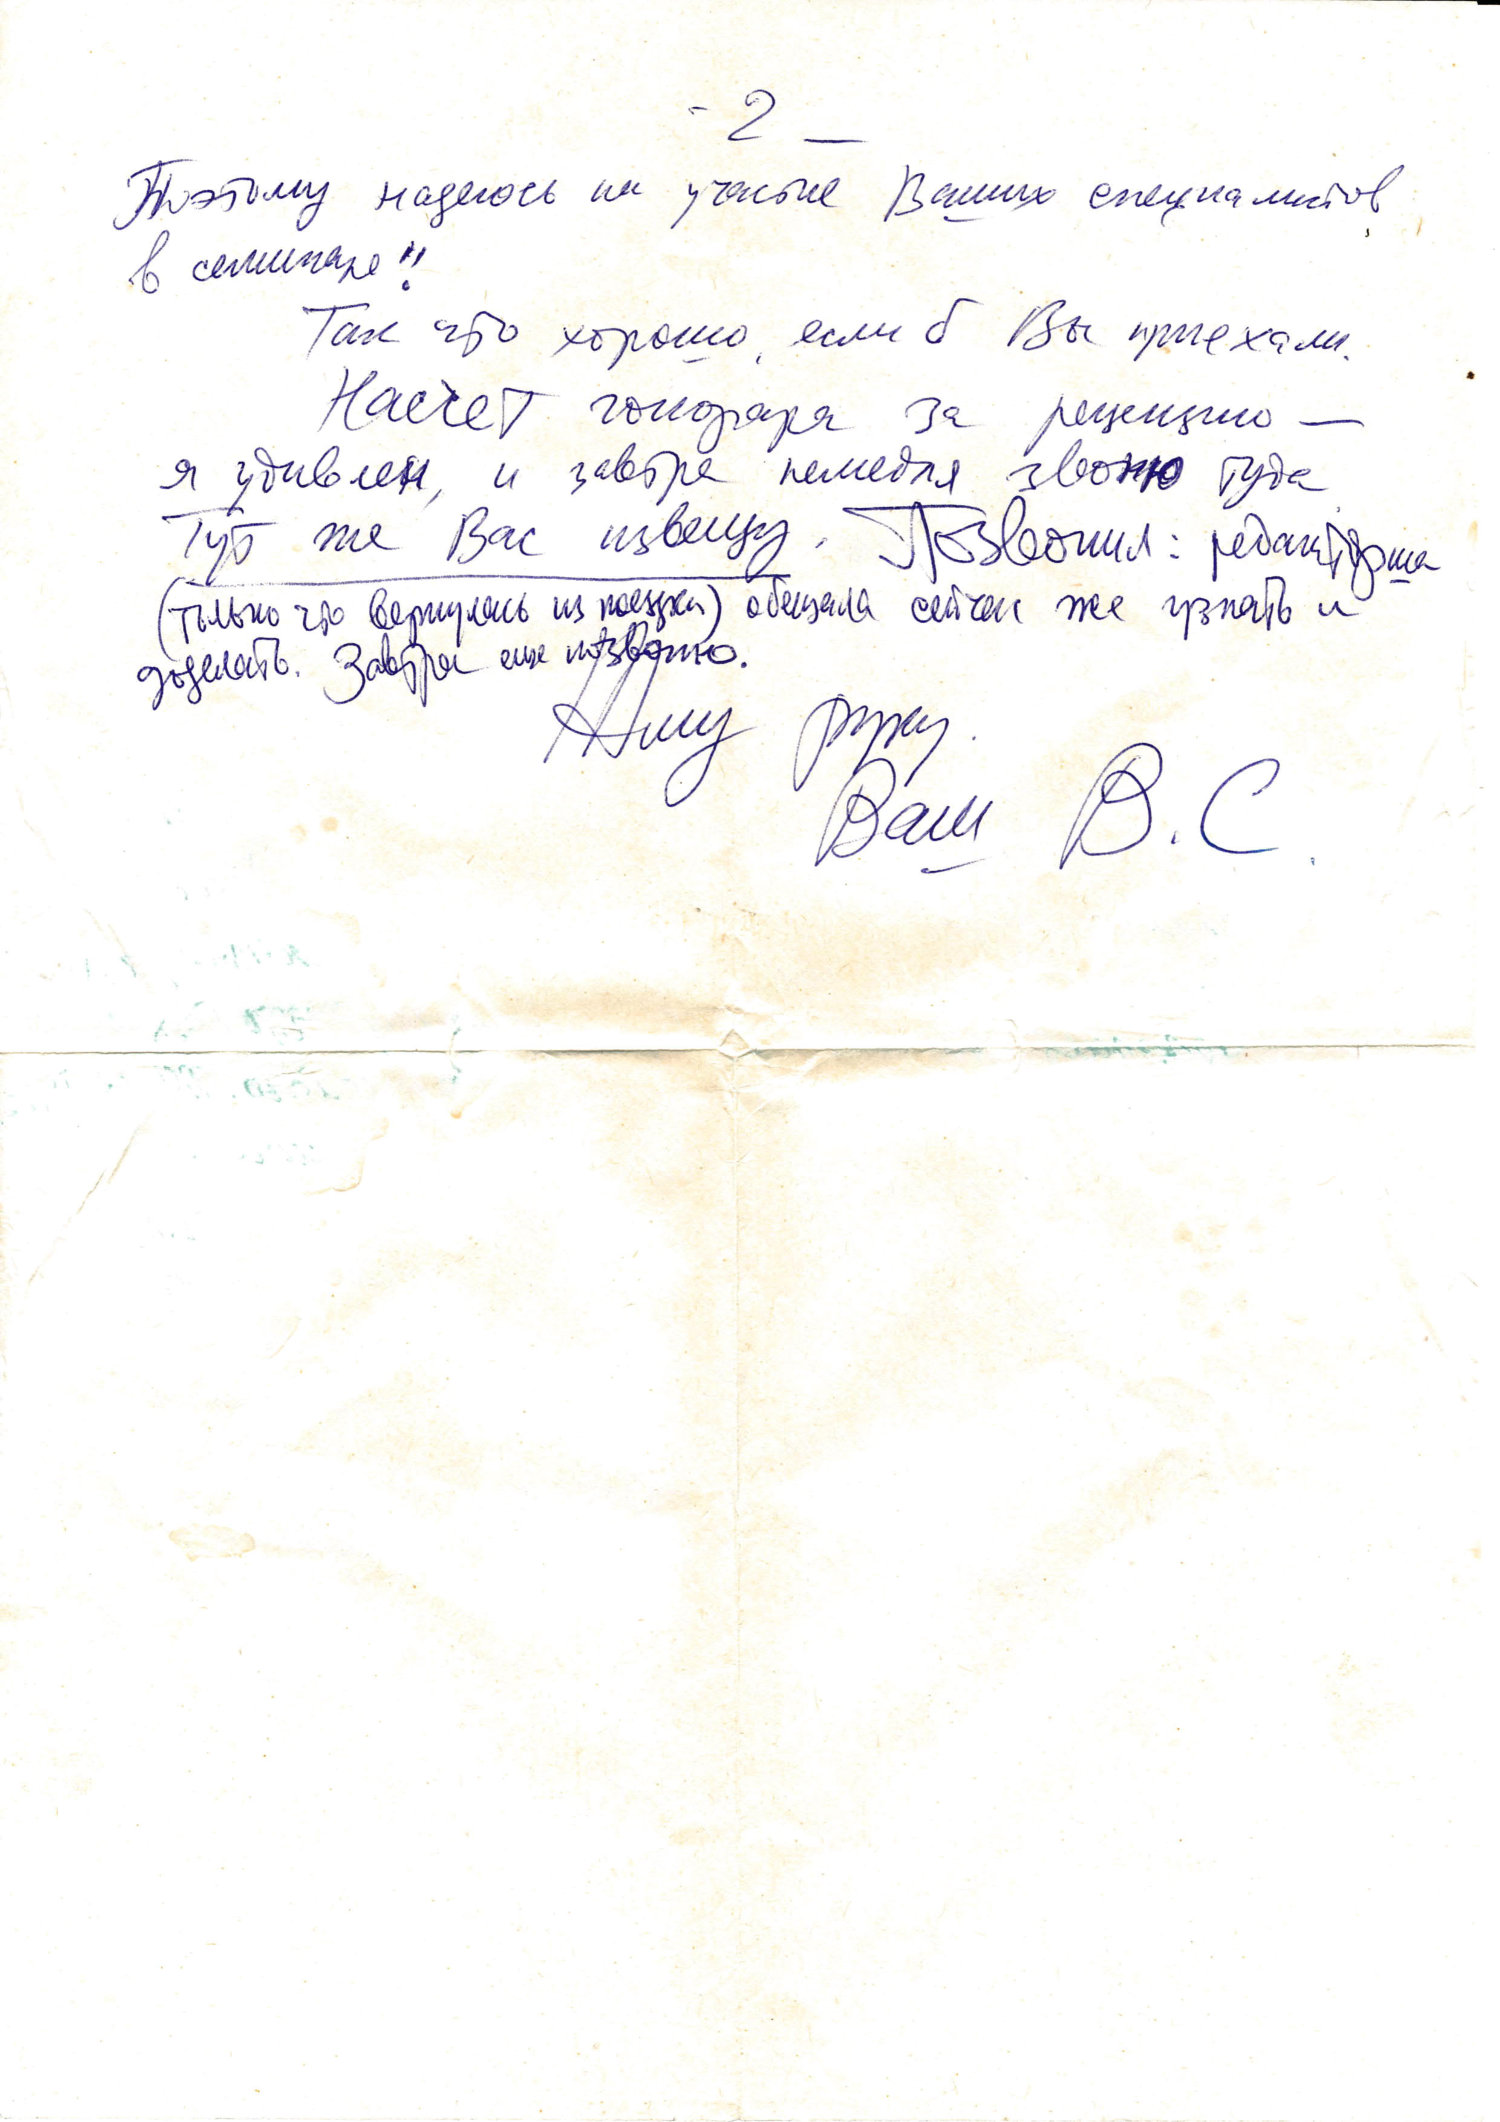 - 2 -
Поэтому надеюсь на участие Ваших специалистов
в семинаре!!
Так что хорошо, если б Вы приехали.
Насчет гонорара за рецензию —
я удивлен, и завтра немедля звоню туда.
Тут же Вас извещу. Позвонил: редакторша
(только что вернулась из поездки) обещала сейчас же узнать и
доделать. Завтра еще позвоню.
Жму руку.
Ваш В. С.